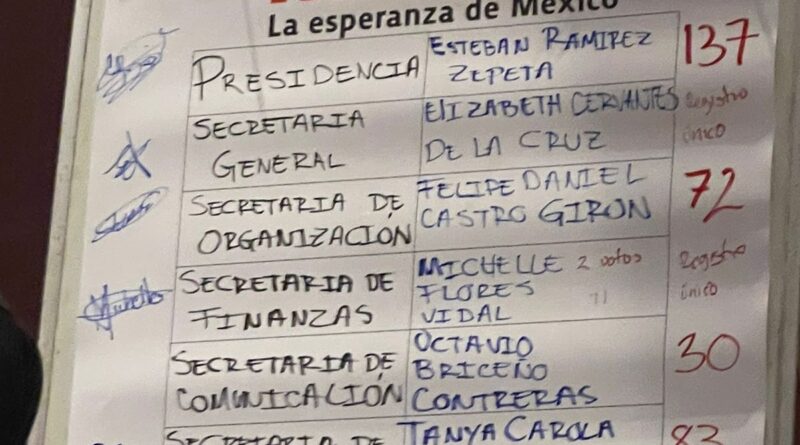 La esperanza de México
PRESIDENCIA
ESTEBAN RAMIREZ
ZEPETA
137
SECRETARIA
GENERAL
ElIZABETH CERVANTES
DE LA CRUZ
Registro
único
SECRETARIA DE
ORGANIZACIÓN
FELIPE DANIEL
CASTRO GIRON
72
SECRETARIA DE
FINANZAS
MICHELLE 2 votos
FLORES
VIDAL
Registro
único
SECRETARIA DE
COMUNICACIÓN
OCTAVIO
BRICEÑO
CONTRERAS
30
SECRETARIA DE
TANYA CAROLA
83